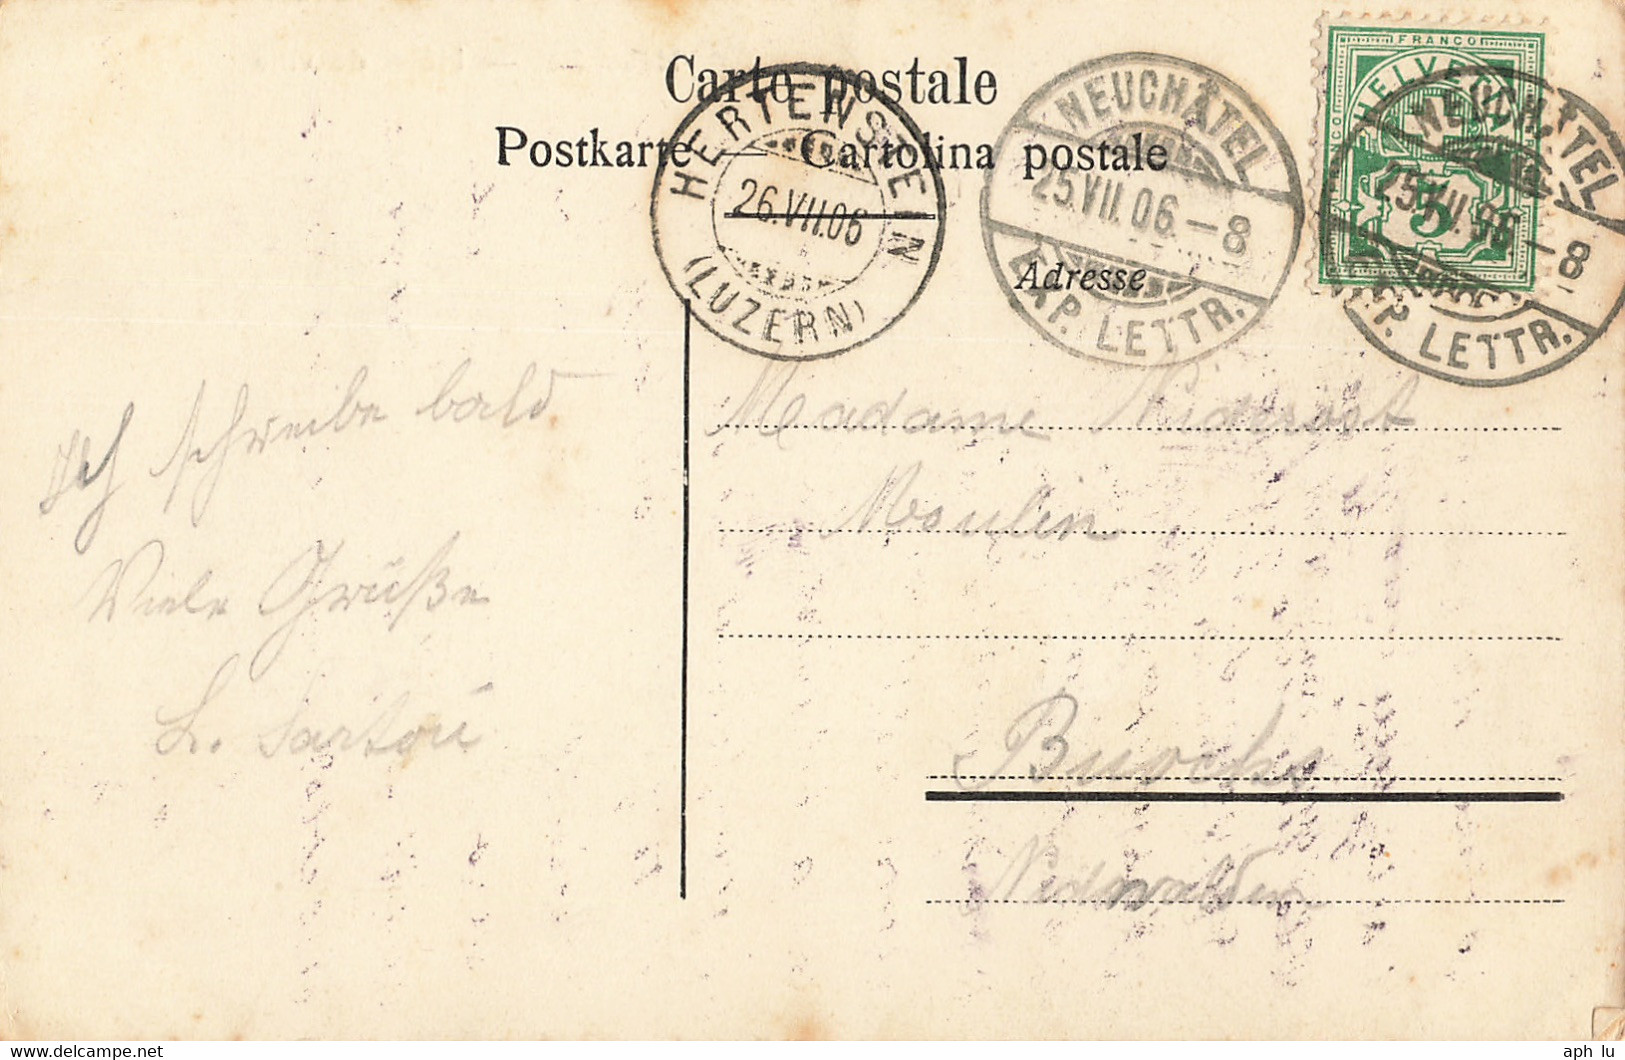 Carte postale
Postkarte — Cartolina postale
HERTENSTEIN
26.VII.06
(LUZERN)
NEUCHÂTEL
25.VII.06.–8
EXP. LETTR.
FRANCO
HELVETIA
FRANCO
5
NEUCHÂTEL
25.VII.06–8
EXP. LETTR.
Adresse
Ich schreibe bald
Viele Grüße
L. Sartori
Madame Niderost
Moulin
Buochs
Nidwalden
aph lu